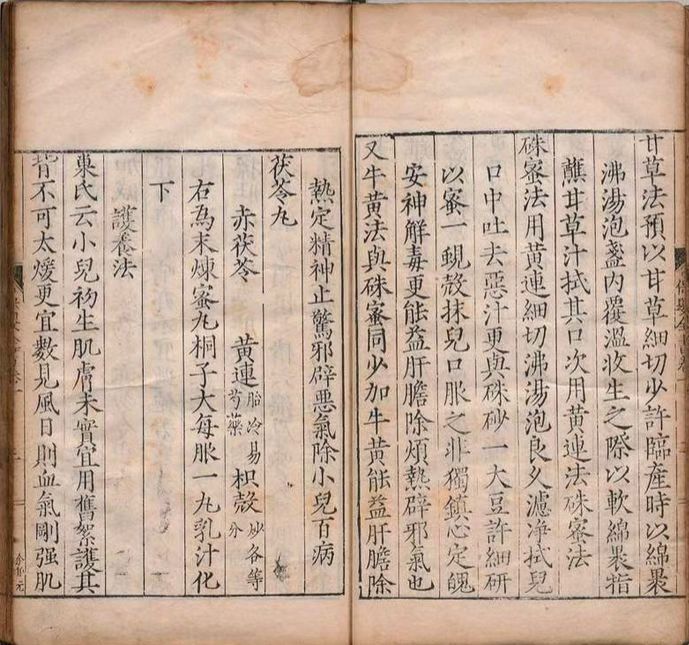 甘草法預以甘草細切少許臨產時以綿裹
沸湯泡盞內覆溫收生之際以軟綿裹指
蘸甘草汁拭其口次用黃連法硃蜜法
硃蜜法用黃連細切沸湯泡良久濾淨拭兒
口中吐去惡汁更與硃砂一大豆許細研
以蜜一蜆殼抹兒口服之非獨鎮心定魄
安神解毒更能益肝膽除煩熱辟邪氣也
又牛黃法與硃蜜同少加牛黃能益肝膽除
熱定精神止驚邪辟惡氣除小兒百病
茯苓丸
赤茯苓 黃連胎冷易芍藥 枳殼炒各等分
右為末煉蜜丸桐子大每服一丸乳汁化
下
護養法
巢氏云小兒初生肌膚未實宜用舊絮護其
背不可太煖更宜數見風日則血氣剛强肌